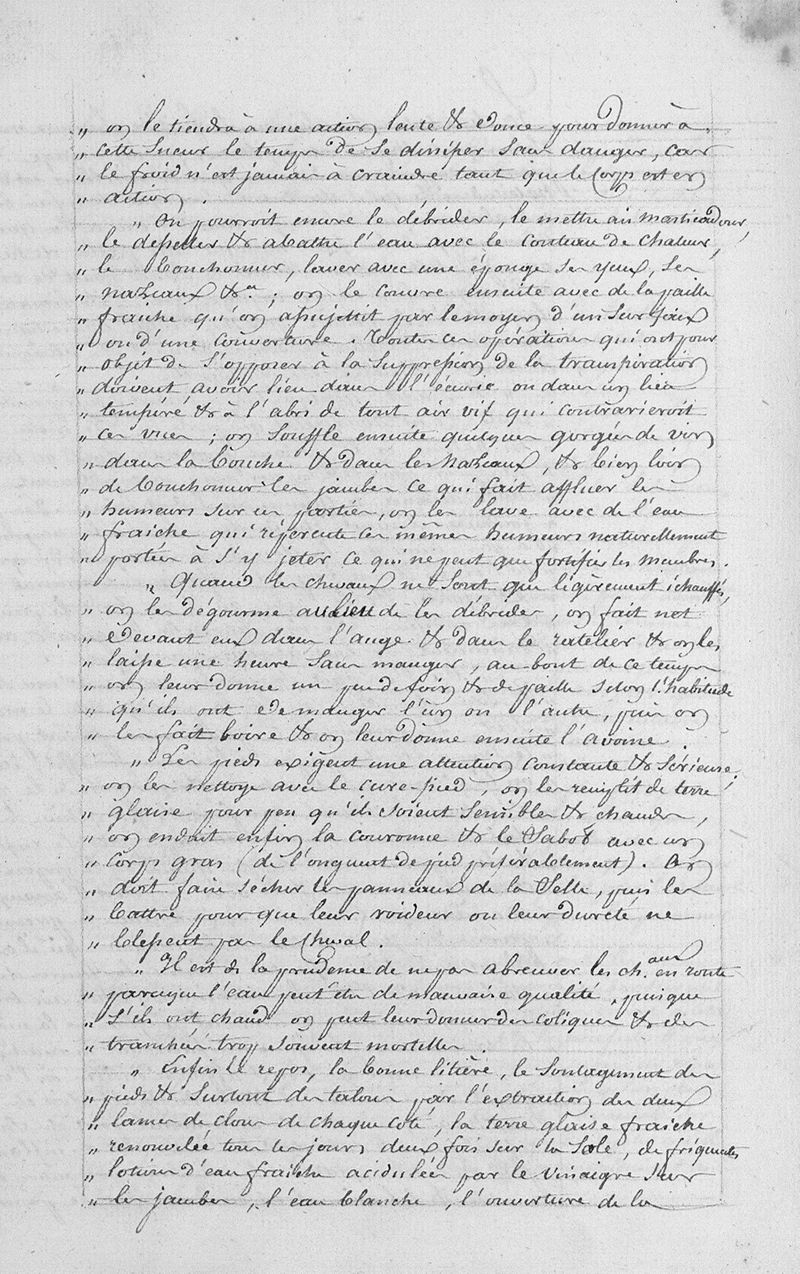 „ on le tiendra à une action lente & douce pour donner à
„ cette sueur le temps de se dissiper sans danger, car
„ le froid n'est jamais à craindre tant que le Corps est en
„ action.
„ „ On pourroit encore le débrider, le mettre au masticadour,
„ le desseller & abattre l'eau avec le couteau de chaleur,
„ le bouchonner, laver avec une éponge ses yeux, ses
„ nazeaux &a ; on le couvre ensuite avec de la paille
„ fraiche qu'on assujettit par le moyen d'un surfaix
„ ou d'une couverture. Toutes ces opérations qui ont pour
„ objet de s'opposer à la suppression de la transpiration
„ doivent avoir lieu dans l'écurie ou dans un lieu
„ tempéré & à l'abri de tout air vif qui contrarieroit
„ ces vues ; on souffle ensuite quelques gorgées de vin
„ dans la bouche & dans les nazeaux, & bien loin
„ de bouchonner les jambes ce qui fait affluer les
„ humeurs sur ces parties, on les lave avec de l'eau
„ fraiche qui répercute ces mêmes humeurs naturellement
„ portées à s'y jeter ce qui ne peut que fortifier les membres.
„ Quand les chevaux ne sont que légèrement échauffés,
„ on les dégourme au lieu de les débrider, on fait net
„ devant eux dans l'auge & dans le ratelier & on les
„ laisse une heure sans manger, au bout de ce temps
„ on leur donne un peu de foin & de paille selon l'habitude
„ qu'ils ont de manger l'un ou l'autre, puis on
„ les fait boire & on leur donne ensuite l'avoine.
„ „ Les pieds exigent une attention constante & sérieuse,
„ on les nettoye avec le cure-pied, on les remplit de terre
„ glaise pour peu qu'ils soient sensibles & chauds,
„ on enduit enfin la couronne & le sabot avec un
„ corps gras (de l'onguent de pied préférablement). On
„ doit faire sécher les panneaux de la selle, puis les
„ battre pour que leur roideur ou leur dureté ne
„ blessent pas le cheval.
„ Il est de la prudence de ne pas abreuver les ch.aux en route
„ parceque l'eau peut etre de mauvaise qualité, puisque
„ s'ils ont chaud on peut leur donner des coliques & des
„ tranchées trop souvent mortelles.
„ „ Enfin le repos, la bonne litière, le soulagement des
„ pieds & surtout des talons par l'extraction des deux
„ lames de clous de chaque coté, la terre glaise fraiche
„ renouvelée tous les jours deux fois sur la sole, de fréquentes
„ lotions d'eau fraiche acidulées par le vinaigre sur
„ les jambes, l'eau blanche, l'ouverture de la